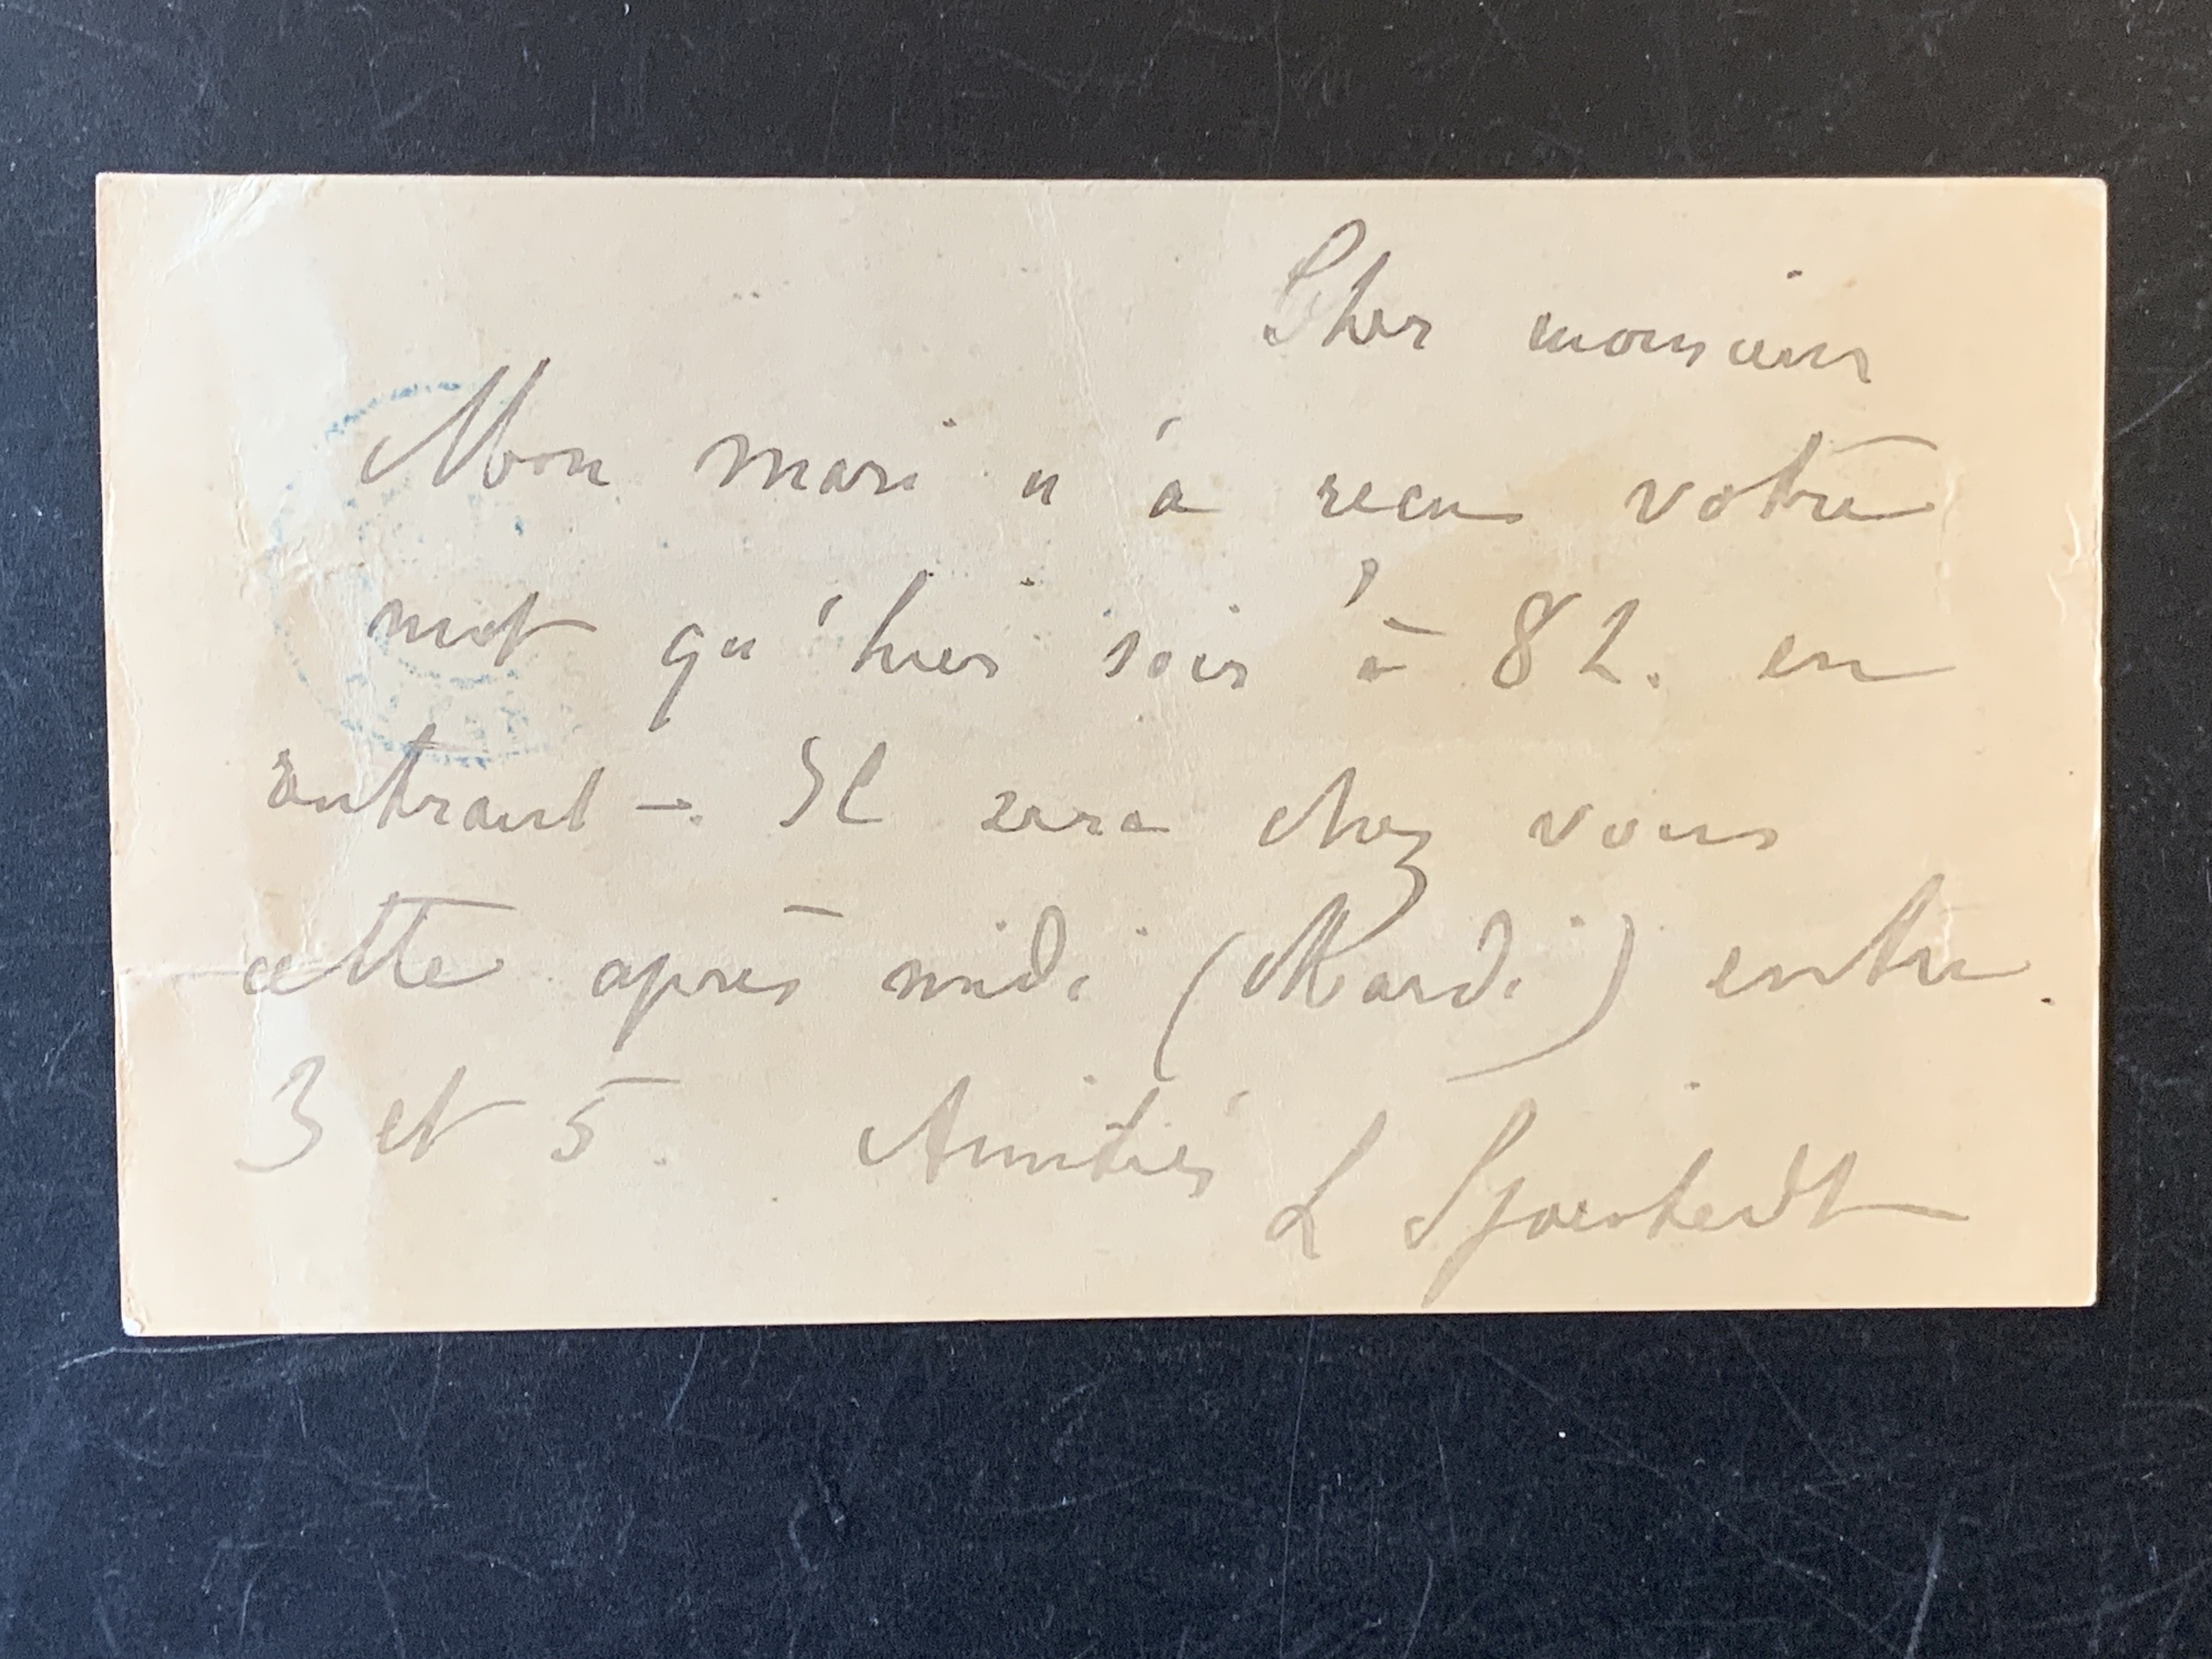 Cher monsieur
Mon mari n'a recu votre
mot qu'hier soir à 8 h. en
rentrant -. Il sera chez vous
cette après midi (Mardi) entre
3 et 5. Amitiés
L